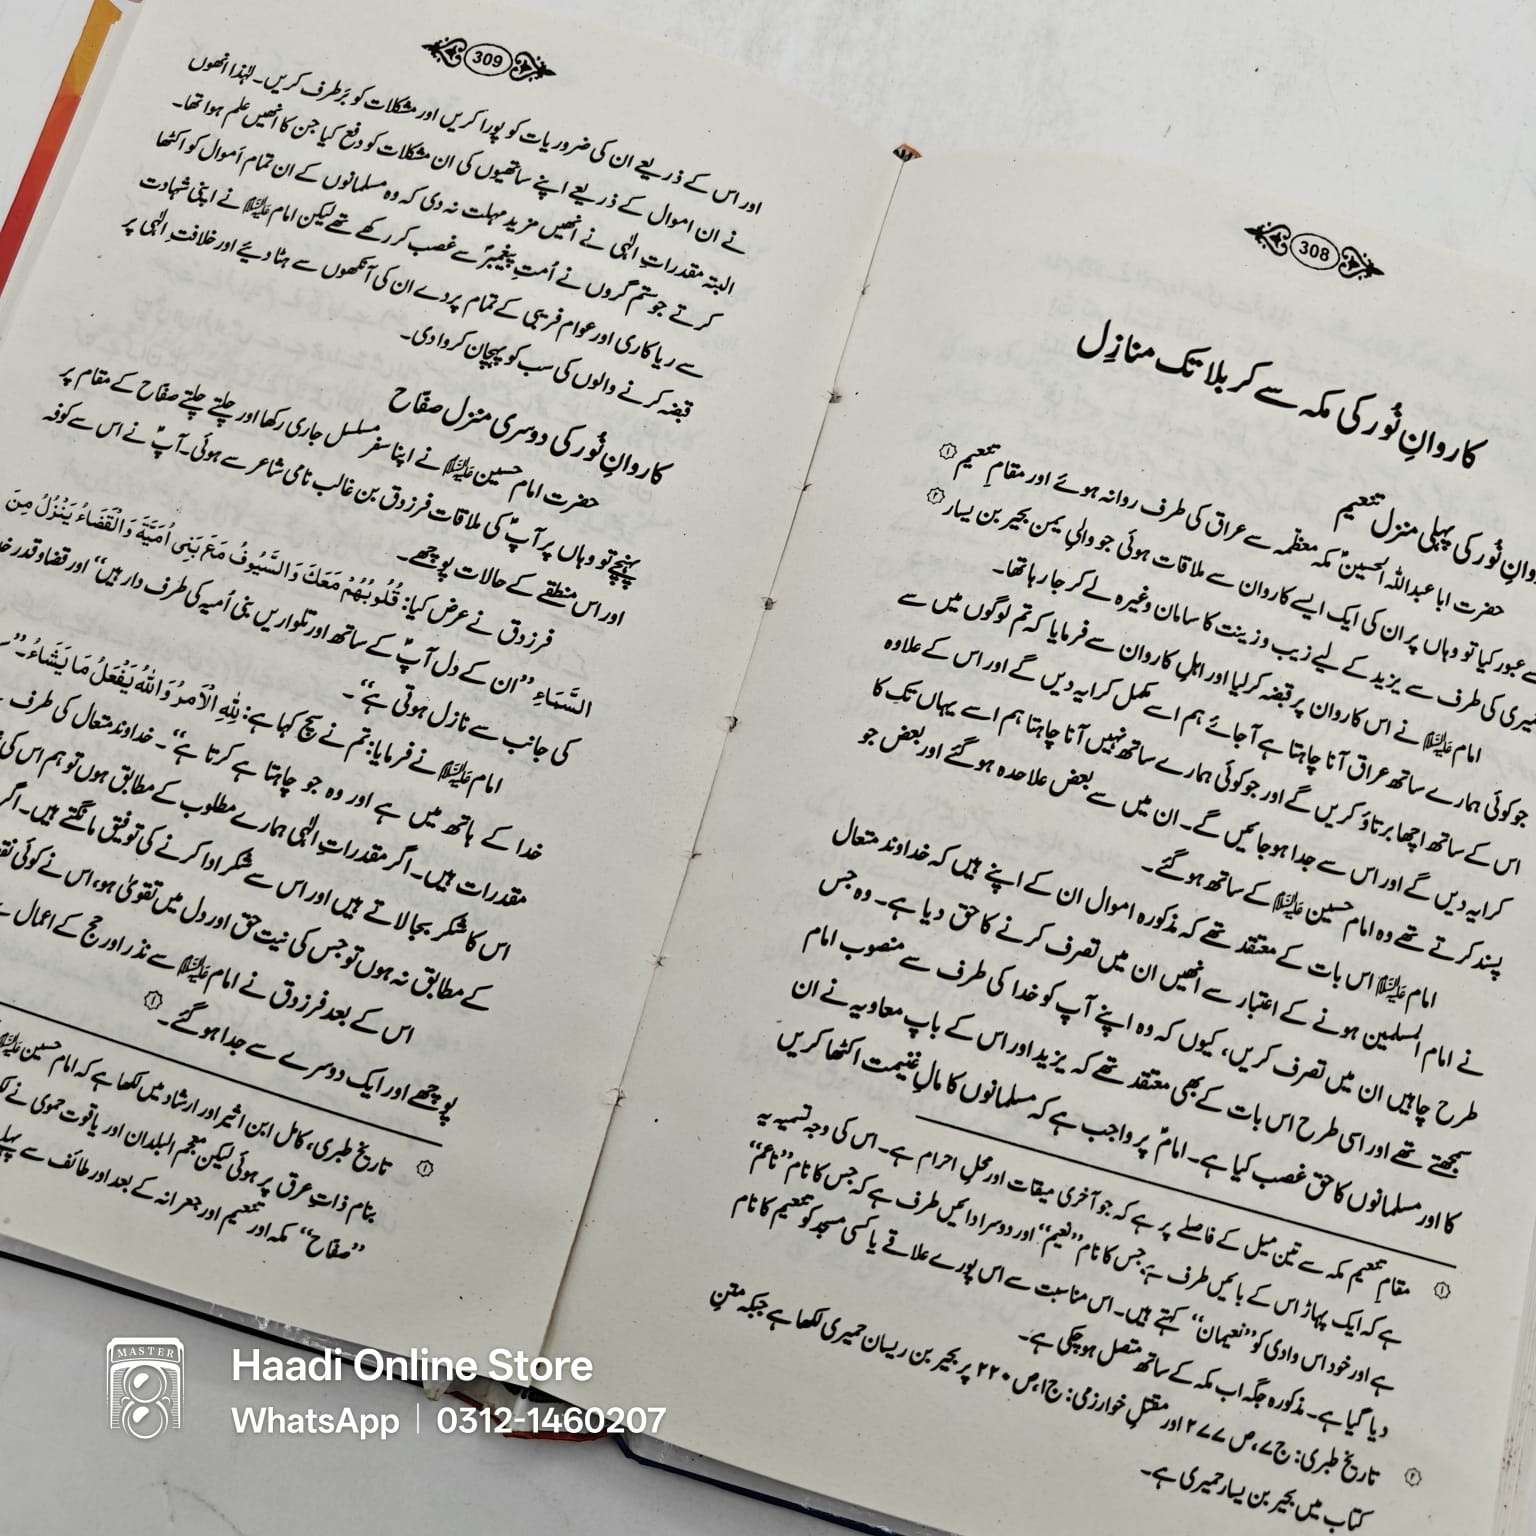 308
کاروانِ نُور کی مکہ سے کربلا تک منازِل
کی پہلی منزل تنعیم
حضرت ابا عبداللہ الحسینؑ مکہ معظمہ سے عراق کی طرف روانہ ہوئے اور مقامِ تنعیم ①
سے عبور کیا تو وہاں پر ان کی ایک ایسے کاروان سے ملاقات ہوئی جو والیِ یمن بحیر بن یسار ②
کی طرف سے یزید کے لیے زیب و زینت کا سامان وغیرہ لے کر جا رہا تھا۔
امام علیہ السلام نے اس کاروان پر قبضہ کر لیا اور اہلِ کاروان سے فرمایا کہ تم لوگوں میں سے
جو کوئی ہمارے ساتھ عراق آنا چاہتا ہے آ جائے ہم اسے مکمل کرایہ دیں گے اور اس کے علاوہ
اس کے ساتھ اچھا برتاؤ کریں گے اور جو کوئی ہمارے ساتھ نہیں آنا چاہتا ہم اسے یہاں تک کا
کرایہ دیں گے اور اس سے جدا ہو جائیں گے۔ ان میں سے بعض علاحدہ ہو گئے اور بعض جو
پسند کرتے تھے وہ امام حسین علیہ السلام کے ساتھ ہو گئے۔
امام علیہ السلام اس بات کے معتقد تھے کہ مذکورہ اموال ان کے اپنے ہیں کہ خداوند متعال
نے امام المسلمین ہونے کے اعتبار سے انھیں ان میں تصرف کرنے کا حق دیا ہے۔ وہ جس
طرح چاہیں ان میں تصرف کریں، کیوں کہ وہ اپنے آپ کو خدا کی طرف سے منصوب امام
سمجھتے تھے اور اسی طرح اس بات کے بھی معتقد تھے کہ یزید اور اس کے باپ معاویہ نے ان
کا اور مسلمانوں کا حق غصب کیا ہے۔ امامؑ پر واجب ہے کہ مسلمانوں کا مالِ غنیمت اکٹھا کریں
① مقامِ تنعیم مکہ سے تین میل کے فاصلے پر ہے کہ جو آخری میقات اور محلِ احرام ہے۔ اس کی وجہ تسمیہ یہ
ہے کہ ایک پہاڑ اس کے بائیں طرف ہے جس کا نام ”نعیم“ اور دوسرا دائیں طرف ہے کہ جس کا نام ”ناعم“
ہے اور خود اس وادی کو ”نعیمان“ کہتے ہیں۔ اس مناسبت سے اس پورے علاقے یا کسی مسجد کو تنعیم کا نام
دیا گیا ہے۔ مذکورہ جگہ اب مکہ کے ساتھ متصل ہو چکی ہے۔
② تاریخ طبری: ج ۷، ص ۲۷۷ اور مقتلِ خوارزمی: ج ۱، ص ۲۲۰ پر بحیر بن ریسان حمیری لکھا ہے جبکہ متنِ
کتاب میں بحیر بن یسار حمیری ہے۔
309
اور اس کے ذریعے ان کی ضروریات کو پورا کریں اور مشکلات کو برطرف کریں۔ لہٰذا انھوں
نے ان اموال کے ذریعے اپنے ساتھیوں کی ان مشکلات کو دفع کیا جن کا انھیں علم ہوا تھا۔
البتہ مقدراتِ الٰہی نے انھیں مزید مہلت نہ دی کہ وہ مسلمانوں کے ان تمام اَموال کو اکٹھا
کرتے جو ستم گروں نے اُمتِ پیغمبرؐ سے غصب کر رکھے تھے لیکن امام علیہ السلام نے اپنی شہادت
سے ریاکاری اور عوام فریبی کے تمام پردے ان کی آنکھوں سے ہٹا دیئے اور خلافتِ الٰہی پر
قبضہ کرنے والوں کی سب کو پہچان کروا دی۔
کاروانِ نُور کی دوسری منزل صفّاح
حضرت امام حسین علیہ السلام نے اپنا سفر مسلسل جاری رکھا اور چلتے چلتے صفّاح کے مقام پر
پہنچے تو وہاں پر آپؑ کی ملاقات فرزوق بن غالب نامی شاعر سے ہوئی۔ آپؑ نے اس سے کوفہ
اور اس منطقے کے حالات پوچھے۔
فرزوق نے عرض کیا: قُلُوبُهُمْ مَعَكَ وَالسُّيُوفُ مَعَ بَنِي أُمَيَّةَ وَالْقَضَاءُ يَنْزِلُ مِنَ
السَّمَاءِ ”ان کے دل آپؑ کے ساتھ اور تلواریں بنی اُمیہ کی طرف دار ہیں“ اور قضا و قدر
کی جانب سے نازل ہوتی ہے“۔
امام علیہ السلام نے فرمایا: تم نے سچ کہا ہے: لِلّٰهِ الْأَمْرُ وَاللّٰهُ يَفْعَلُ مَا يَشَاءُ۔
خدا کے ہاتھ میں ہے اور وہ جو چاہتا ہے کرتا ہے“۔ خداوند متعال کی طرف
مقدرات ہیں۔ اگر مقدراتِ الٰہی ہمارے مطلوب کے مطابق ہوں تو ہم اس کی
اس کا شکر بجا لاتے ہیں اور اس سے شکر ادا کرنے کی توفیق مانگتے ہیں۔ اگر
کے مطابق نہ ہوں تو جس کی نیت حق اور دل میں تقویٰ ہو، اس نے کوئی
اس کے بعد فرزوق نے امام علیہ السلام سے نذر اور حج کے اعمال
پوچھے اور ایک دوسرے سے جدا ہو گئے۔ ①
① تاریخ طبری، کامل ابن اثیر اور ارشاد میں لکھا ہے کہ امام حسین علیہ السلام
بنام ذاتِ عرق پر ہوئی لیکن معجم البلدان اور یاقوت حموی نے
”صفاح“ مکہ اور تنعیم اور جعرانہ کے بعد اور طائف سے پہلے
MASTER
Haadi Online Store
WhatsApp | 0312-1460207